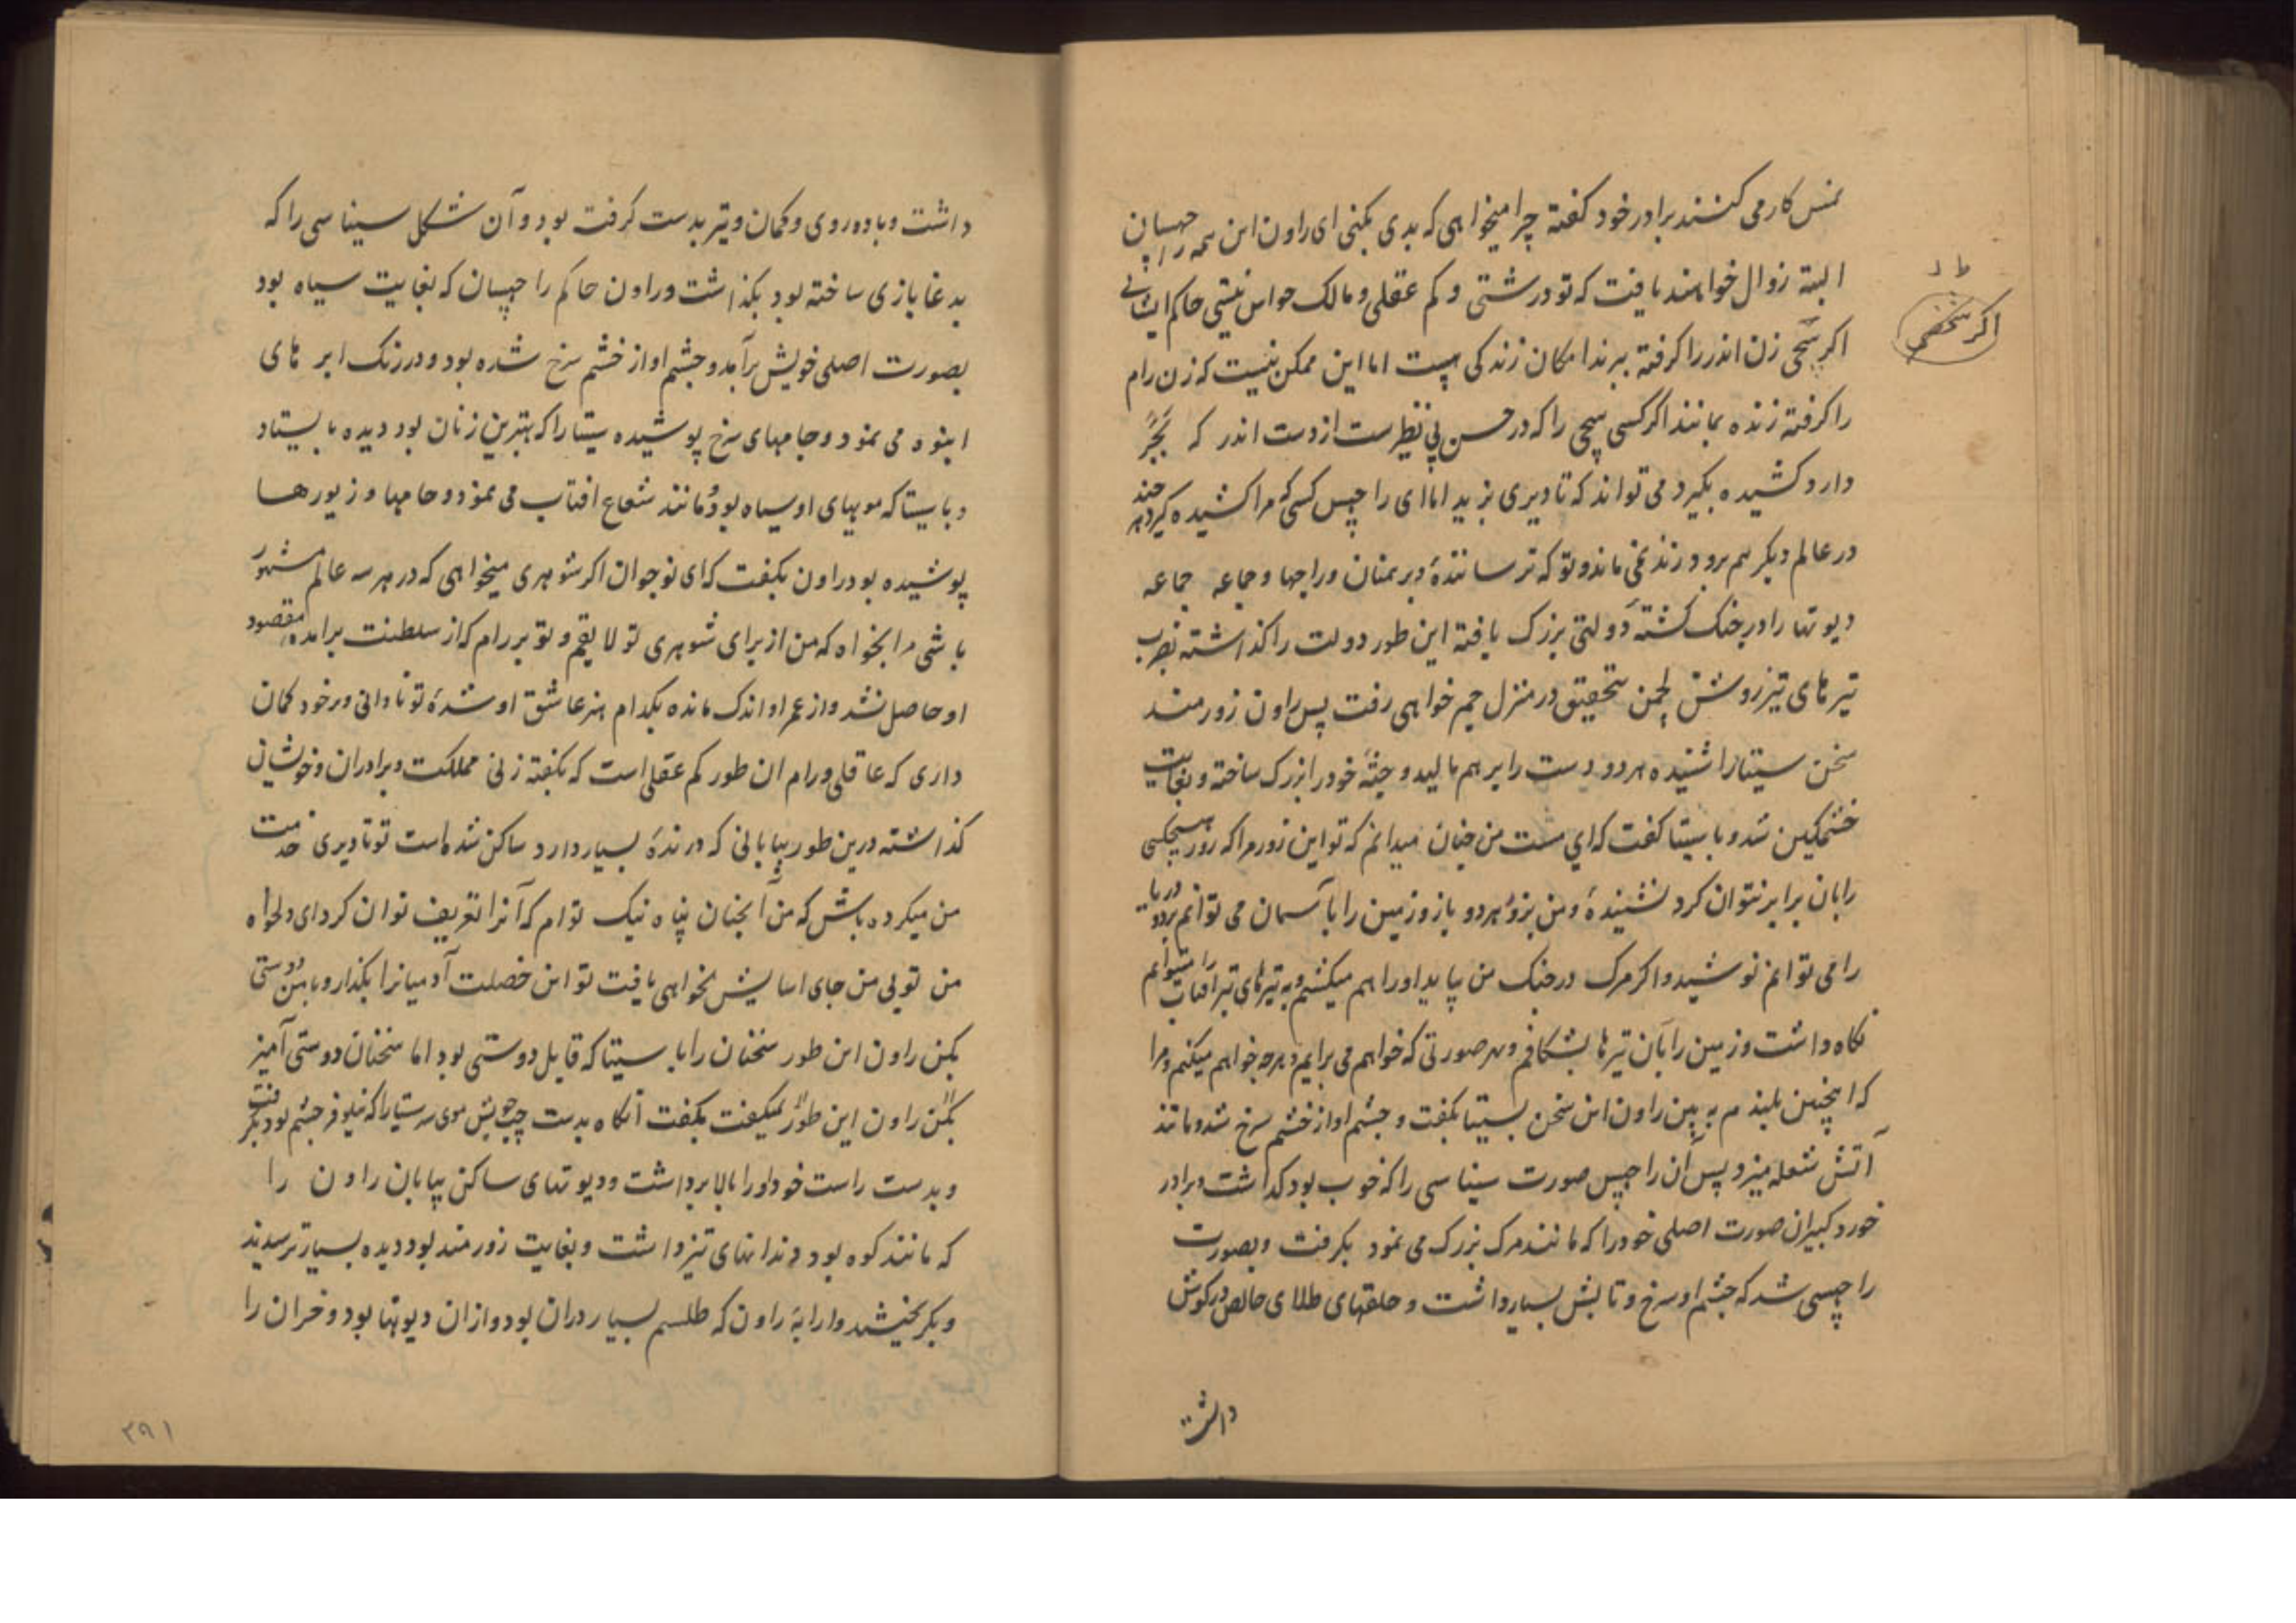 نمس کار می کنند برادر خود کفته چرا میخواهی که بدی بکنی ای راون این همه راچهسان
البته زوال خواهند یافت که تو درشتی و کم عقلی و مالک حواس نیستی حاکم ایشانی
اکر سچی زن اندر را کرفته ببرند امکان زندکی هست اما این ممکن نیست که زن رام
را کرفته زنده بمانند اکر کسی سچی را که در حسن بی نظیرست از دست اندر که بجر
دارد کشیده بکیرد می تواند که تا دیری بزید اما ای راچهس کسی که مرا کشیده کیرد هر چند
در عالم دیکر هم برود زنده نمی ماند و تو که ترسانندهٔ برهمنان و راجها و جماعه جماعه
دیوتها را در جنک کشته دولتی بزرک یافتهٔ این طور دولت را کذاشته بضرب
تیرهای تیز روشن لچمن بتحقیق در منزل جم خواهی رفت پس راون زورمند
سخن سیتا را شنیده هر دو دست را بر هم مالید و جثهٔ خود را بزرک ساخته و بغایت
خشمکین شد و با سیتا کفت که ای مست من چنان میدانم که تو این زور مرا که زور هیچکسی
را بان برابر نتوان کرد نشنیدهٔ و من بزور هر دو بازو زمین را با آسمان می توانم برد و دریا
را می توانم نوشید و اکر مرک در جنک من بیاید او را هم میکشم و به تیرهای تیز آفتاب را میتوانم
نکاه داشت و زمین را بآن تیرها بشکافم و بهر صورتی که خواهم می برایم و هر چه خواهم میکنم و مرا
که اینچنین بلندم به بین راون این سخن بسیتا بکفت و چشم او از خشم سرخ شد و مانند
آتش شعله میزد پس آن راچهس صورت سیناسی را که خوب بود کذاشت و برادر
خورد کبیران صورت اصلی خود را که مانند مرک بزرک می نمود بکرفت و بصورت
راچهسی شد که چشم او سرخ و تابش بسیار داشت و حلقهای طلای خالص در کوش
داشت
ط د
اکر شخصی
داشت و با ده روی و کمان و تیر بدست کرفته بود و آن شکل سیناسی را که
بدغابازی ساخته بود بکذاشت و راون حاکم راچهسان که بغایت سیاه بود
بصورت اصلی خویش برآمد و چشم او از خشم سرخ شده بود و در رنک ابر های
انبوه می نمود و جامهای سرخ پوشیده سیتا را که بهترین زنان بود دیده بایستاد
و با سیتا که مویهای او سیاه بود و مانند شعاع افتاب می نمود و جامها و زیورها
پوشیده بود راون بکفت که ای نوجوان اکر شوهری میخواهی که در هر سه عالم مشهور
باشی مرا بخواه که من از برای شوهری تو لایقم و تو بر رام که از سلطنت برامده و مقصود
او حاصل نشد و از عمر او اندک مانده بکدام هنر عاشق او شدهٔ تو نادانی و بر خود کمان
داری که عاقلی و رام ان طور کم عقلی است که بکفته زنی مملکت و برادران و خویشان
کذاشته درین طور بیابانی که درندهٔ بسیار دارد ساکن شده است تو تا دیری خدمت
من میکرده باش که من آنچنان پناه نیک توام که آنرا تعریف توان کرد ای دلخواه
من تو بی من جای اسایش نخواهی یافت تو این خصلت آدمیانرا بکذار و با من دوستی
بکن راون این طور سخنان را با سیتا که قابل دوستی بود اما سخنان دوستی آمیز
بکن راون این طور نمیکفت بکفت آنکاه بدست چپ خویش موی سر سیتا را که نیلوفر چشم بود بکرفت
و بدست راست خود او را بالا برداشت و دیوتهای ساکن بیابان راون را
که مانند کوه بود و دندانهای تیز داشت و بغایت زورمند بود دیده بسیار ترسیدند
و بکریختند و ارابهٔ راون که طلسم بسیار دران بود و ازان دیوتها بود و خران را
۳۹۱